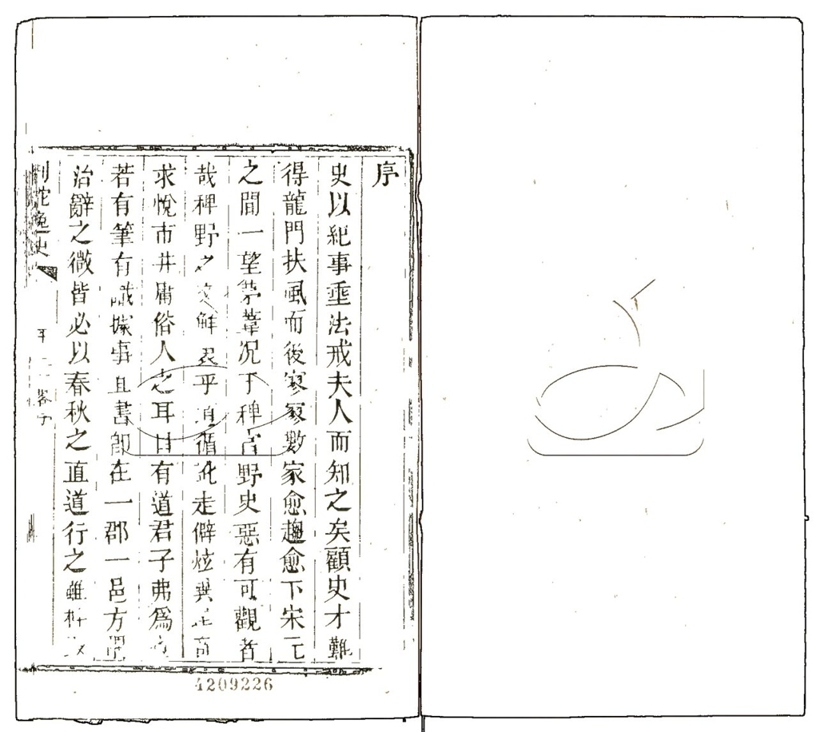 序
史以紀事垂法戒夫人而知之矣顧史才難
得龍門扶風而後寥寥數家愈趨愈下宋元
之間一望茅葦況于稗官野史惡有可觀者
哉稗野之文鮮忍乎道循訛走僻炫異走奇
求悅市井庸俗人之耳目有道君子弗為
若有筆有識據事直書即在一郡一邑方聞
治辭之微皆必以春秋之直道行之雖
逸史
4209226